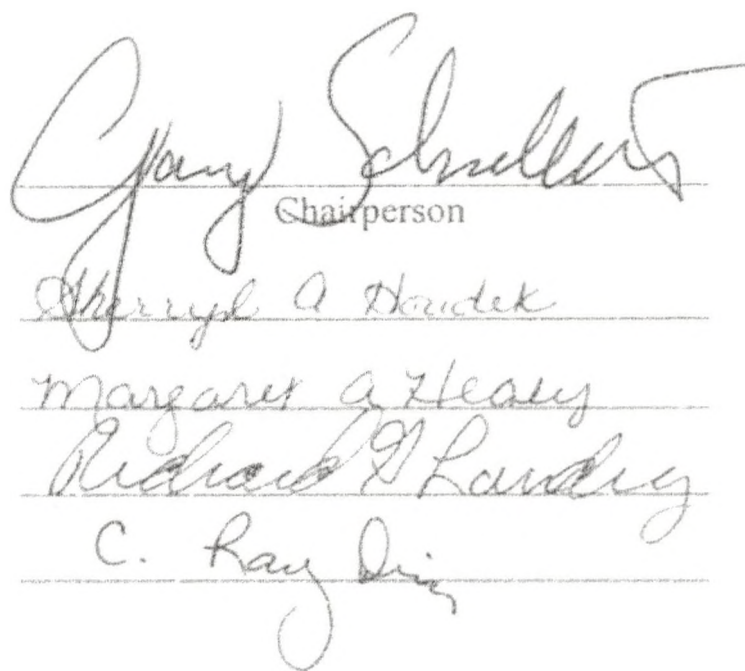 Gary Schnellert
Chairperson
Sherryl A Houdek
Margaret A Healy
Richard G Landry
C. Ray